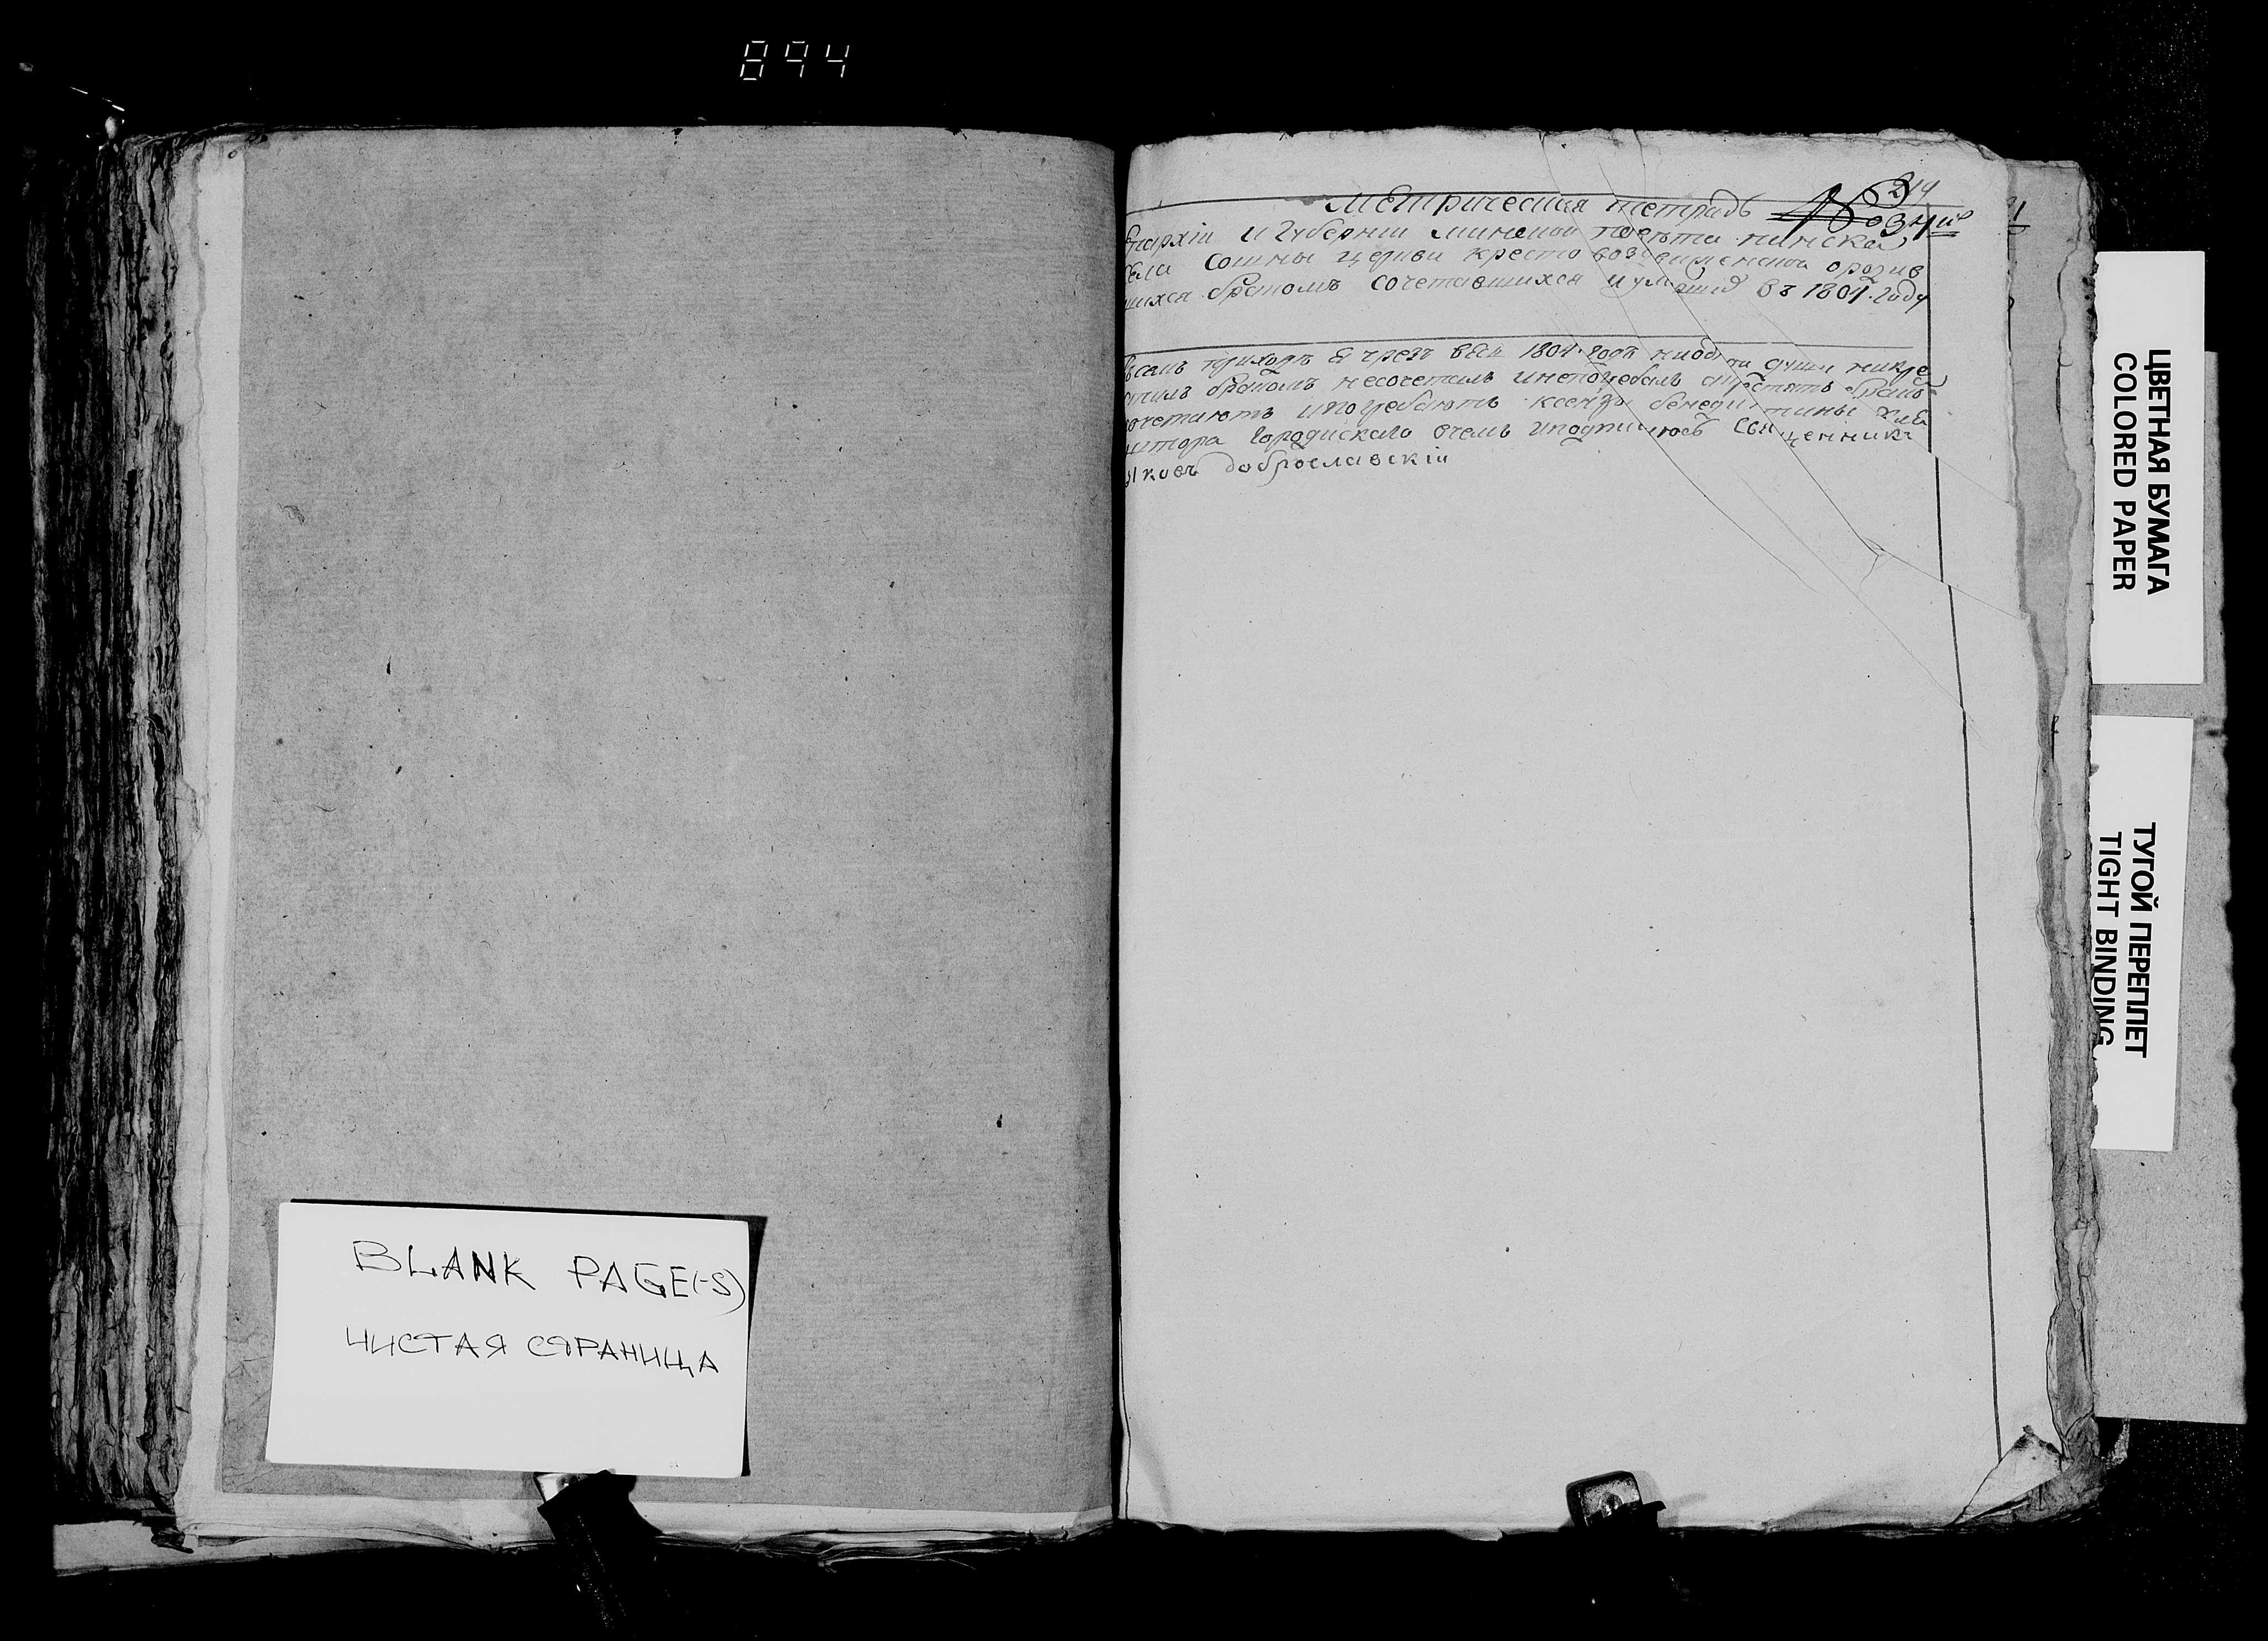 894
BLANK PAGE(-S)
ЧИСТАЯ СТРАНИЦА
214
Метрическая тетрадь
Епархіи и Губерніи Минской повѣта пинска
села Сошны церкви кресто воздвиженской о родив
шихся браком сочетавшихся и умерших въ 1801. году
чрезъ весь 1801. годъ ни одной души
браком несочетал и непогребалъ
сочетаютъ и погребаютъ ксендзы бенедиктины
Городискаго о чемъ и подпишюсь Священникъ
Яковъ доброславскій
ЦВЕТНАЯ БУМАГА
COLORED PAPER
ТУГОЙ ПЕРЕПЛЕТ
TIGHT BINDING